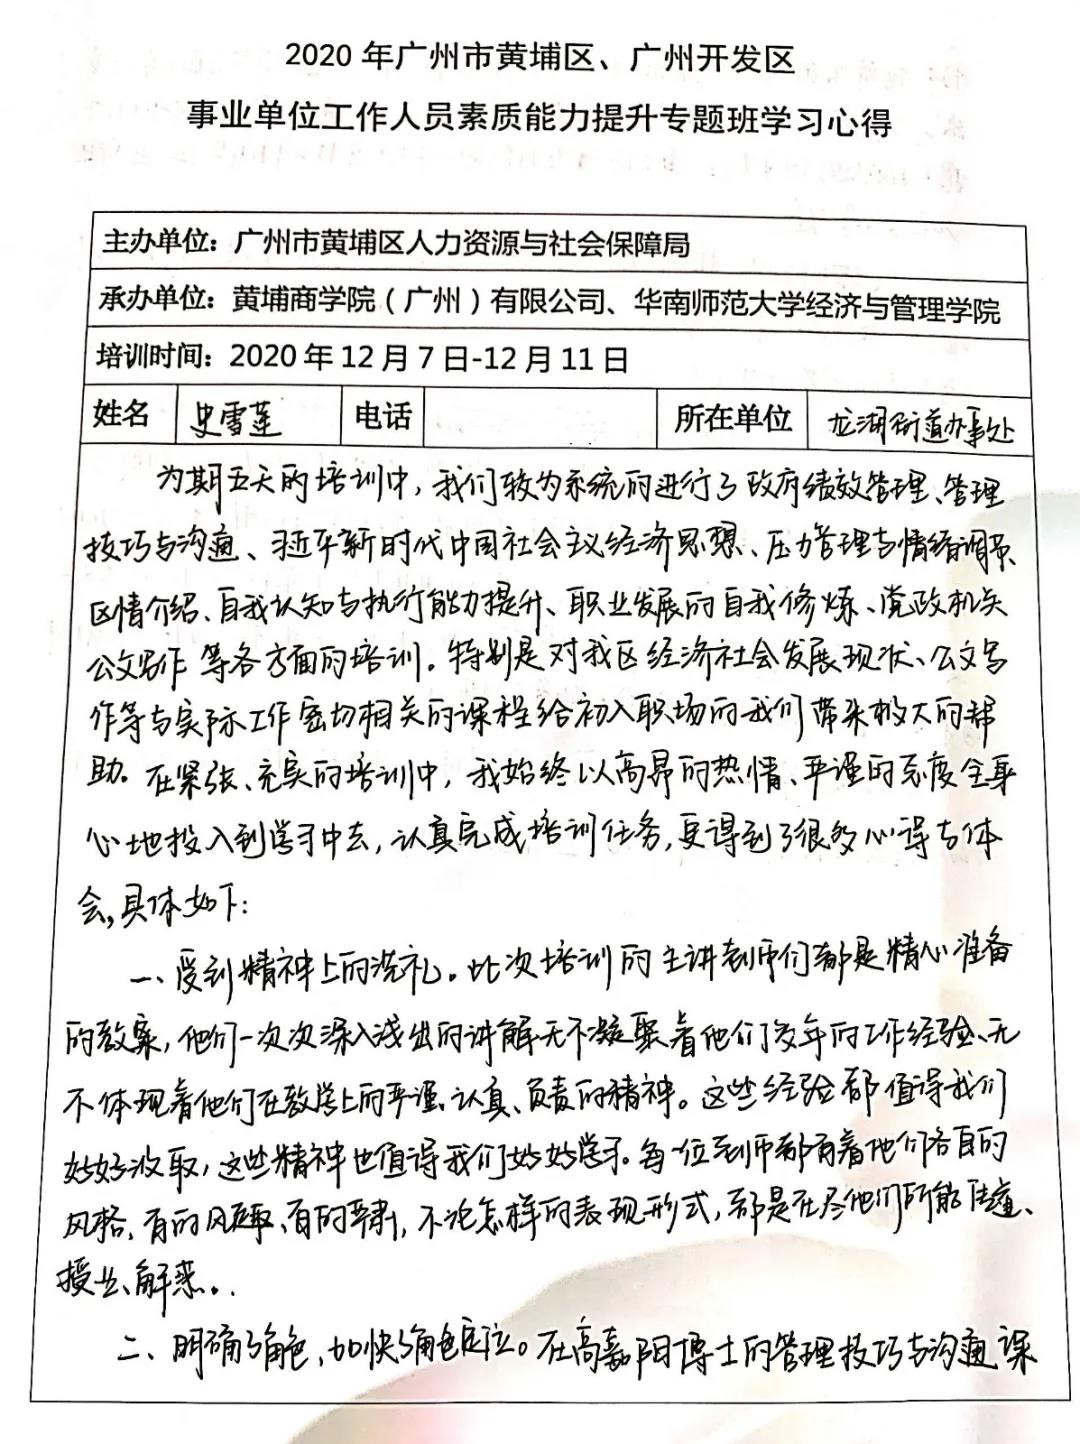 2020 年广州市黄埔区、广州开发区
事业单位工作人员素质能力提升专题班学习心得
主办单位：广州市黄埔区人力资源与社会保障局
承办单位：黄埔商学院（广州）有限公司、华南师范大学经济与管理学院
培训时间：2020 年 12 月 7 日-12 月 11 日
姓名 史雪莲 电话 所在单位 龙湖街道办事处
为期五天的培训中，我们较为系统的进行了政府绩效管理、管理
技巧与沟通、习近平新时代中国社会主义经济思想、压力管理与情绪调景
区情介绍、自我认知与执行能力提升、职业发展的自我修炼、党政机关
公文写作 等各方面的培训。特别是对我区经济社会发展现状、公文写
作等与实际工作密切相关的课程给初入职场的我们带来极大的帮
助。在紧张、充实的培训中，我始终以高昂的热情、严谨的态度全身
心地投入到学习中去，认真完成培训任务，更得到了很多心得与体
会，具体如下：
一、受到精神上的洗礼。此次培训的主讲老师们都是精心准备
的教案，他们一次次深入浅出的讲解无不凝聚着他们多年的工作经验、无
不体现着他们在教学上的严谨、认真、负责的精神。这些经验都值得我们
好好汲取，这些精神也值得我们好好学习。每一位老师都有着他们各自的
风格，有的风趣、有的严肃，不论怎样的表现形式，都是在尽他们所能传道、
授业、解惑。
二、明确了角色，加快了角色定位。在高嘉阳博士的管理技巧与沟通课